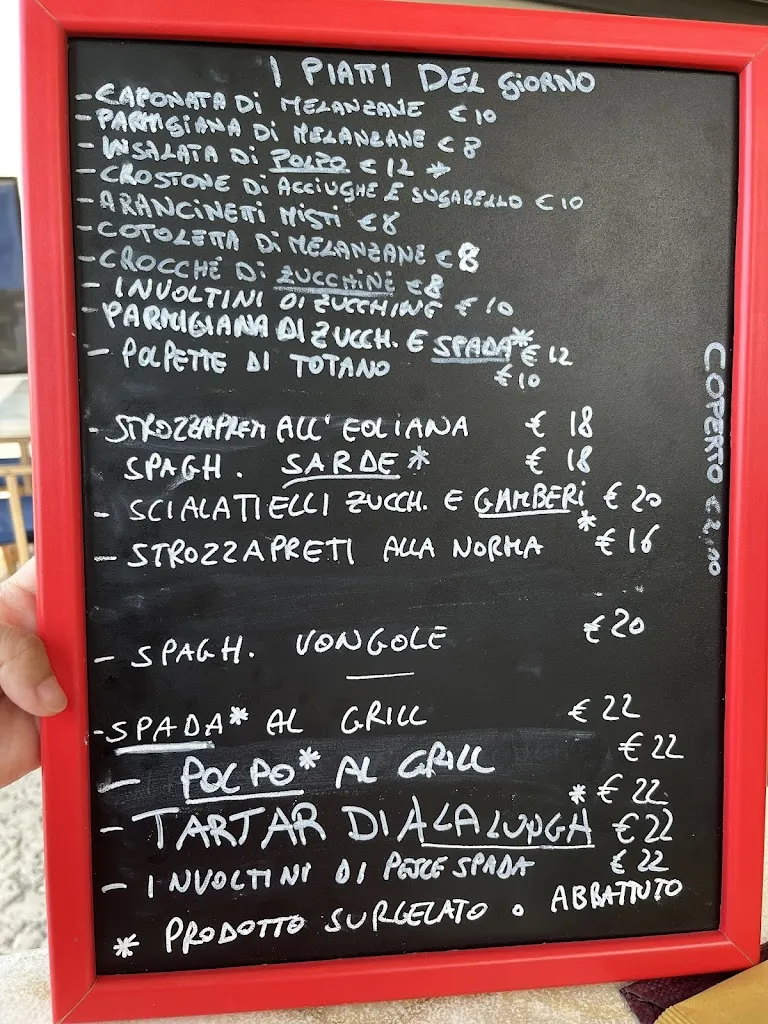 I PIATTI DEL GIORNO
- CAPONATA DI MELANZANE €10
- PARMIGIANA DI MELANZANE €8
- INSALATA DI POLPO €12 *
- CROSTONE DI ACCIUGHE E SUGARELLO €10
- ARANCINETTI MISTI €8
- COTOLETTA DI MELANZANE €8
- CROCCHÉ DI ZUCCHINE €8
- INVOLTINI DI ZUCCHINE €10
- PARMIGIANA DI ZUCCH. E SPADA* €12
- POLPETTE DI TOTANO €10
- STROZZAPRETI ALL'EOLIANA € 18
SPAGH. SARDE* € 18
- SCIALATIELLI ZUCCH. E GAMBERI * € 20
- STROZZAPRETI ALLA NORMA €16
- SPAGH. VONGOLE €20
- SPADA* AL GRILL € 22
- POLPO* AL GRILL € 22
* € 22
- TARTAR DI ALALUNGA € 22
- INVOLTINI DI PESCE SPADA € 22
* PRODOTTO SURGELATO O ABBATTUTO
COPERTO €2,00